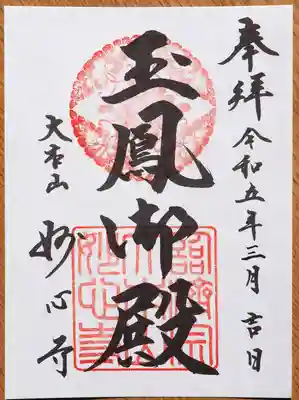 奉拝 令和五年三月吉日
玉鳳御殿
大本山 妙心寺